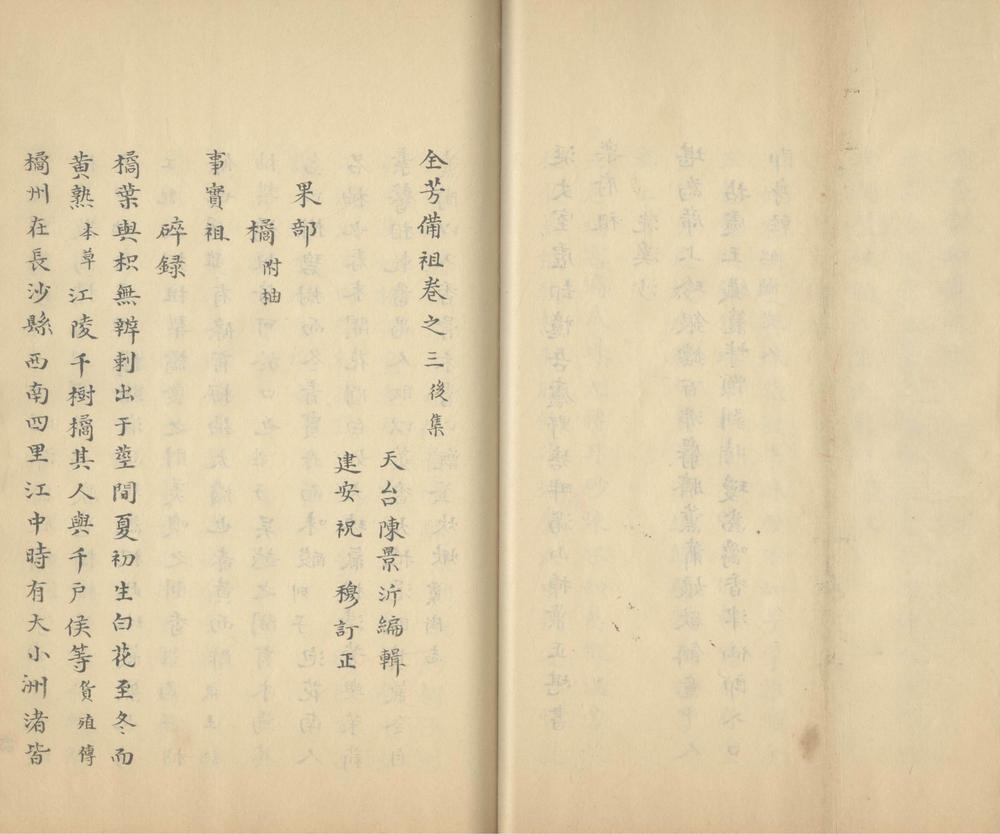 全芳備祖卷之三後集
天台陳景沂編輯
建安祝穆訂正
果部
橘附柚
事實祖
碎録
橘葉與枳無辨刺出于莖間夏初生白花至冬而
黄熟本草江陵千樹橘其人與千户侯等貨殖傳
橘州在長沙縣西南四里江中時有大小洲渚皆